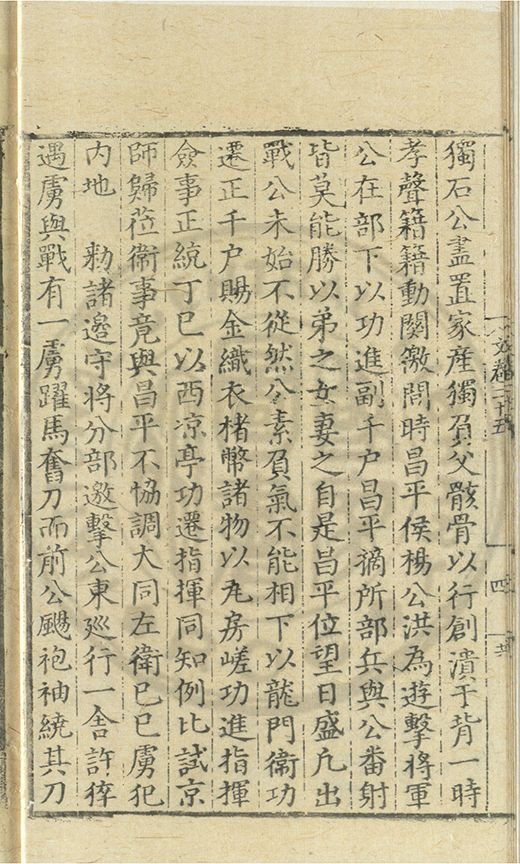 獨石公盡置家産獨負父骸骨以行創潰于背一時
孝聲籍籍動關徼間時昌平侯楊公洪為遊擊將軍
公在部下以功進副千户昌平摘所部兵與公番射
皆莫能勝以弟之女妻之自是昌平位望日盛凢出
戰公未始不從然公素負氣不能相下以龍門衛功
遷正千户賜金織衣楮幣諸物以夗房嵯功進指揮
僉事正統丁巳以西凉亭功遷指揮同知例比試京
師歸莅衛事竟與昌平不協調大同左衛巳巳虜犯
内地 勑諸邊守將分部邀擊公東廵行一舍許猝
遇虜與戰有一虜躍馬奮刀而前公颺袍袖繞其刀
文籍二十五
四